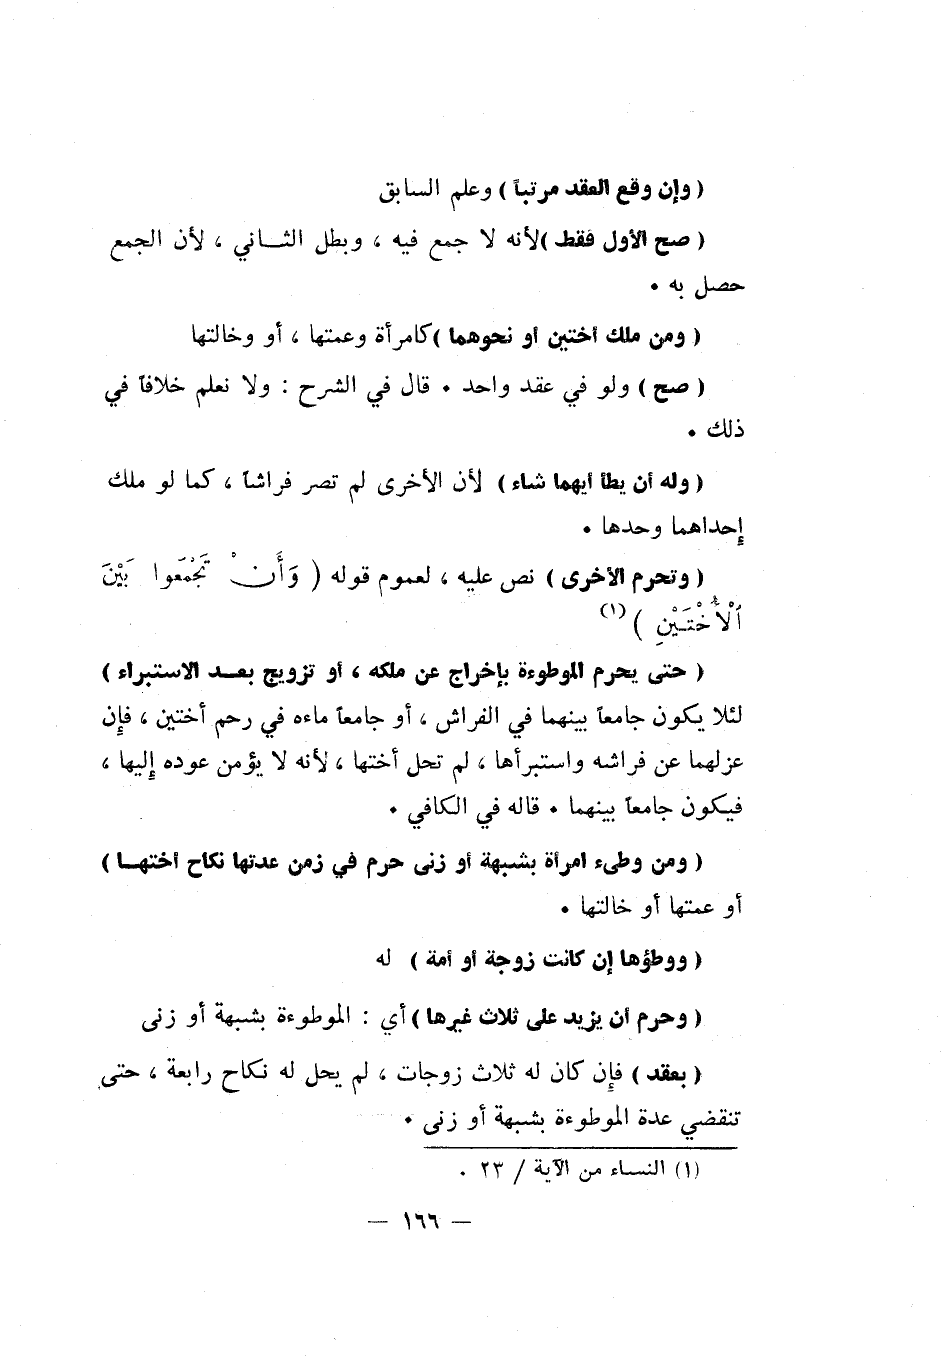 ( وإن وقع العقد مرتباً ) وعلم السابق
( صح الأول فقط )لأنه لا جمع فيه ، وبطل الثـاني ، لأن الجمع
حصل به •
( ومن ملك أختين أو نحوهما )كامرأة وعمتها ، أو وخالتها
( صح ) ولو في عقد واحد • قال في الشرح : ولا نعلم خلافاً في
ذلك •
( وله أن يطأ أيهما شاء ) لأن الأخرى لم تصر فراشاً ، كما لو ملك
إحداهما وحدها •
( وتحرم الأخرى ) نص عليه ، لعموم قوله ( وَأَنْ تَجْمَعُوا بَيْنَ
ٱلْأُخْتَيْنِ ) (١)
( حتى يحرم الموطوءة بإخراج عن ملكه ، أو تزويج بعـد الاستبراء )
لئلا يكون جامعاً بينهما في الفراش ، أو جامعاً ماءه في رحم أختين ، فإن
عزلهما عن فراشه واستبرأها ، لم تحل أختها ، لأنه لا يؤمن عوده إليها ،
فيكون جامعاً بينهما • قاله في الكافي •
( ومن وطىء امرأة بشبهة أو زنى حرم في زمن عدتها نكاح أختهـا )
أو عمتها أو خالتها •
( ووطؤها إن كانت زوجة أو أمة ) له
( وحرم أن يزيد على ثلاث غيرها ) أي : الموطوءة بشبهة أو زنى
( بعقد ) فإن كان له ثلاث زوجات ، لم يحل له نكاح رابعة ، حتى
تنقضي عدة الموطوءة بشبهة أو زنى •
(١) النساء من الآية / ٢٣ .
— ١٦٦ —